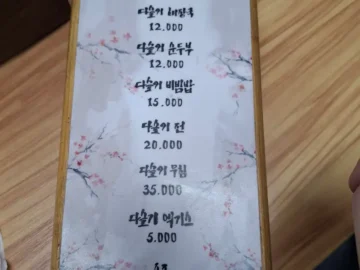 다슬기 해장국
12.000
다슬기 순두부
12.000
다슬기 비빔밥
15.000
다슬기 전
20.000
다슬기 무침
35.000
다슬기 엑기스
5.000